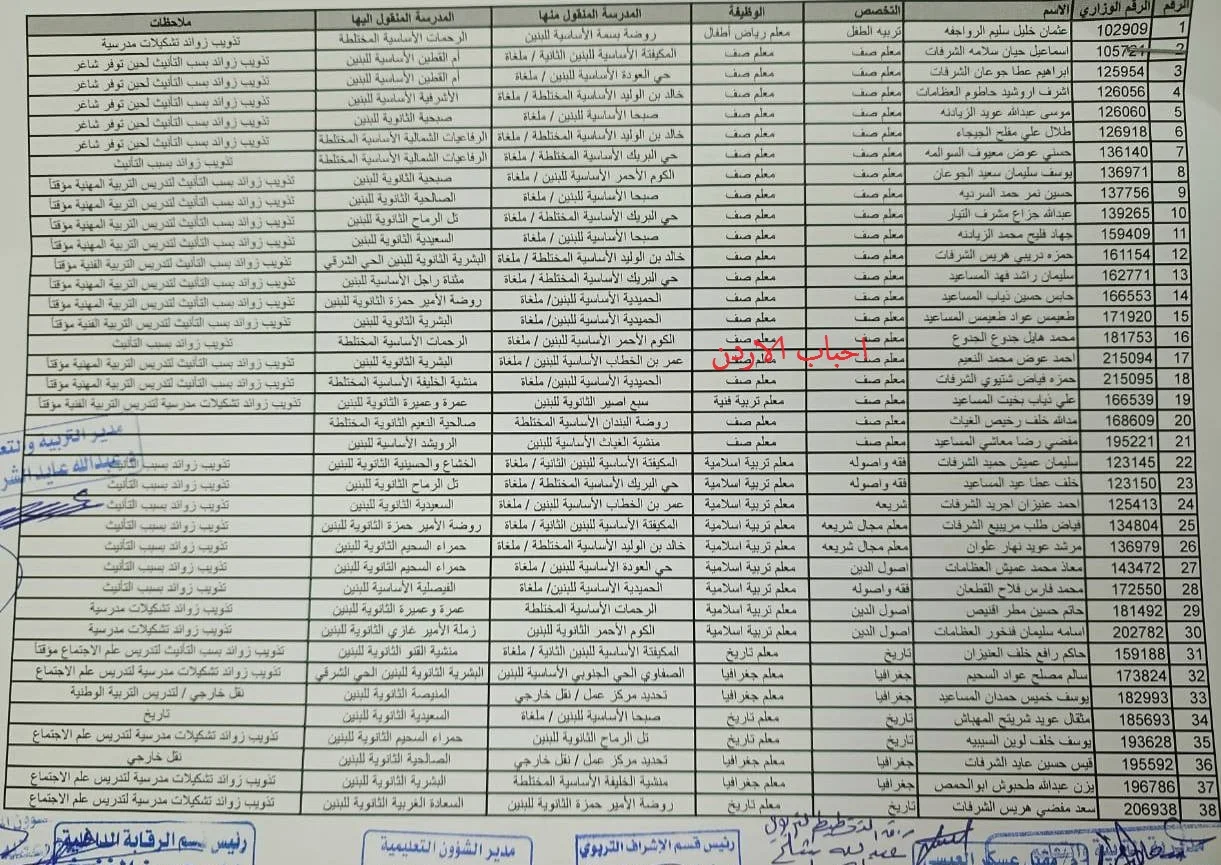 الرقم الرقم الوزاري الاسم التخصص الوظيفة المدرسة المنقول منها المدرسة المنقول اليها ملاحظات
1 102909 عثمان خليل سليم الرواجفه تربيه الطفل معلم رياض أطفال روضة بسمة الأساسية للبنين الرحمات الأساسية المختلطة تذويب زوائد تشكيلات مدرسية
2 105721 اسماعيل حيان سلامه الشرفات معلم صف معلم صف المكيفتة الأساسية للبنين الثانية / ملغاة أم القطين الأساسية للبنين تذويب زوائد بسب التأنيث لحين توفر شاغر
3 125954 ابراهيم عطا جوعان الشرفات معلم صف معلم صف حي العودة الأساسية للبنين / ملغاة أم القطين الأساسية للبنين تذويب زوائد بسب التأنيث لحين توفر شاغر
4 126056 اشرف اروشيد حاطوم العظامات معلم صف معلم صف خالد بن الوليد الأساسية المختلطة / ملغاة الأشرفية الأساسية للبنين تذويب زوائد بسب التأنيث لحين توفر شاغر
5 126060 موسى عبدالله عويد الزيادنه معلم صف معلم صف صبحا الأساسية للبنين / ملغاة صبحية الثانوية للبنين تذويب زوائد بسب التأنيث لحين توفر شاغر
6 126918 طلال علي مفلح الجيجاء معلم صف معلم صف خالد بن الوليد الأساسية المختلطة / ملغاة الرفاعيات الشمالية الأساسية المختلطة تذويب زوائد بسب التأنيث لحين توفر شاغر
7 136140 حسني عوض معيوف السوالمه معلم صف معلم صف حي البريك الأساسية المختلطة / ملغاة الرفاعيات الشمالية الأساسية المختلطة تذويب زوائد بسبب التأنيث
8 136971 يوسف سليمان سعيد الجوعان معلم صف معلم صف الكوم الأحمر الأساسية للبنين / ملغاة صبحية الثانوية للبنين تذويب زوائد بسب التأنيث لتدريس التربية المهنية مؤقتاً
9 137756 حسين نمر حمد السرديه معلم صف معلم صف صبحا الأساسية للبنين / ملغاة الصالحية الثانوية للبنين تذويب زوائد بسب التأنيث لتدريس التربية المهنية مؤقتاً
10 139265 عبدالله جزاع مشرف التيار معلم صف معلم صف حي البريك الأساسية المختلطة / ملغاة تل الرماح الثانوية للبنين تذويب زوائد بسب التأنيث لتدريس التربية المهنية مؤقتاً
11 159409 جهاد فليح محمد الزيادنه معلم صف معلم صف صبحا الأساسية للبنين / ملغاة السعيدية الثانوية للبنين تذويب زوائد بسب التأنيث لتدريس التربية المهنية مؤقتاً
12 161154 حمزه دريبي هريس الشرفات معلم صف معلم صف خالد بن الوليد الأساسية المختلطة / ملغاة البشرية الثانوية للبنين الحي الشرقي تذويب زوائد بسب التأنيث لتدريس التربية الفنية مؤقتاً
13 162771 سليمان راشد فهد المساعيد معلم صف معلم صف حي البريك الأساسية المختلطة / ملغاة مثناة راجل الأساسية للبنين تذويب زوائد بسب التأنيث لتدريس التربية المهنية مؤقتاً
14 166553 حابس حسين ذياب المساعيد معلم صف معلم صف الحميدية الأساسية للبنين/ ملغاة روضة الأمير حمزة الثانوية للبنين تذويب زوائد بسب التأنيث لتدريس التربية المهنية مؤقتاً
15 171920 طعيمس عواد طعيمس المساعيد معلم صف معلم صف الحميدية الأساسية للبنين/ ملغاة البشرية الثانوية للبنين تذويب زوائد بسب التأنيث لتدريس التربية الفنية مؤقتاً
16 181753 محمد هايل جدوع الجدوع معلم صف معلم صف الكوم الأحمر الأساسية للبنين / ملغاة الرحمات الأساسية المختلطة تذويب زوائد بسب التأنيث
احباب الاردن
17 215094 احمد عوض محمد النعيم معلم صف معلم صف عمر بن الخطاب الأساسية للبنين / ملغاة البشرية الثانوية للبنين تذويب زوائد بسب التأنيث لتدريس التربية المهنية مؤقتاً
18 215095 حمزه فياض شتيوي الشرفات معلم صف معلم صف الحميدية الأساسية للبنين/ ملغاة منشية الخليفة الأساسية المختلطة تذويب زوائد بسب التأنيث لتدريس التربية المهنية مؤقتاً
19 166539 علي ذياب بخيت المساعيد معلم صف معلم تربية فنية سبع اصير الثانوية للبنين عمرة وعميرة الثانوية للبنين تذويب زوائد تشكيلات مدرسية لتدريس التربية الفنية مؤقتاً
20 168609 مدالله خلف رخيص الغياث معلم صف معلم صف روضة البندان الأساسية المختلطة صالحية النعيم الثانوية المختلطة
21 195221 مفضي رضا معاشي المساعيد معلم صف معلم صف منشية الغياث الأساسية للبنين الرويشد الأساسية للبنين
22 123145 سليمان عميش حميد الشرفات فقه واصوله معلم تربية اسلامية المكيفتة الأساسية للبنين الثانية / ملغاة الخشاع والحسينية الثانوية للبنين تذويب زوائد بسبب التأنيث
23 123150 خلف عطا عيد المساعيد فقه واصوله معلم تربية اسلامية حي البريك الأساسية المختلطة / ملغاة تل الرماح الثانوية للبنين تذويب زوائد بسبب التأنيث
24 125413 احمد عنيزان اجريد الشرفات شريعه معلم تربية اسلامية عمر بن الخطاب الأساسية للبنين / ملغاة السعيدية الثانوية للبنين تذويب زوائد بسبب التأنيث
25 134804 فياض طلب مريبيع الشرفات معلم مجال شريعه معلم تربية اسلامية المكيفتة الأساسية للبنين الثانية / ملغاة روضة الأمير حمزة الثانوية للبنين تذويب زوائد بسبب التأنيث
26 136979 مرشد عويد نهار علوان معلم مجال شريعه معلم تربية اسلامية خالد بن الوليد الأساسية المختلطة / ملغاة حمراء السحيم الثانوية للبنين تذويب زوائد بسبب التأنيث
27 143472 معاذ محمد عميش العظامات اصول الدين معلم تربية اسلامية حي العودة الأساسية للبنين / ملغاة حمراء السحيم الثانوية للبنين تذويب زوائد بسبب التأنيث
28 172550 محمد فارس فلاح القطعان فقه واصوله معلم تربية اسلامية الحميدية الأساسية للبنين/ ملغاة الفيصلية الأساسية للبنين تذويب زوائد بسبب التأنيث
29 181492 حاتم حسين مطر اقنيص اصول الدين معلم تربية اسلامية الرحمات الأساسية المختلطة عمرة وعميرة الثانوية للبنين تذويب زوائد تشكيلات مدرسية
30 202782 اسامه سليمان فنخور العظامات اصول الدين معلم تربية اسلامية الكوم الأحمر الثانوية للبنين زملة الأمير غازي الثانوية للبنين تذويب زوائد تشكيلات مدرسية
31 159188 حاكم رافع خلف العنيزان تاريخ معلم تاريخ المكيفتة الأساسية للبنين الثانية / ملغاة منشية القنو الثانوية للبنين تذويب زوائد بسب التأنيث لتدريس علم الاجتماع مؤقتاً
32 173824 سالم مصلح عواد السحيم جغرافيا معلم جغرافيا الصفاوي الحي الجنوبي الأساسية للبنين البشرية الثانوية للبنين الحي الشرقي تذويب زوائد تشكيلات مدرسية لتدريس علم الاجتماع
33 182993 يوسف خميس حمدان المساعيد جغرافيا معلم جغرافيا تحديد مركز عمل / نقل خارجي المنيصة الثانوية للبنين نقل خارجي / لتدريس التربية الوطنية
34 185693 مثقال عويد شريتح المهباش تاريخ معلم تاريخ صبحا الأساسية للبنين / ملغاة السعيدية الثانوية للبنين تاريخ
35 193628 يوسف خلف لوين السيبيه تاريخ معلم تاريخ تل الرماح الثانوية للبنين حمراء السحيم الثانوية للبنين تذويب زوائد تشكيلات مدرسية لتدريس علم الاجتماع
36 195592 قيس حسين عايد الشرفات جغرافيا معلم جغرافيا تحديد مركز عمل / نقل خارجي الصالحية الثانوية للبنين نقل خارجي
37 196786 يزن عبدالله طحبوش ابوالحمص جغرافيا معلم جغرافيا منشية الخليفة الأساسية المختلطة البشرية الثانوية للبنين تذويب زوائد تشكيلات مدرسية لتدريس علم الاجتماع
38 206938 سعد مفضي هريس الشرفات تاريخ معلم تاريخ روضة الأمير حمزة الثانوية للبنين السعادة الغربية الثانوية للبنين تذويب زوائد تشكيلات مدرسية لتدريس علم الاجتماع
مدير التربيه
عبدالله عايد
رئيس قسم الإشراف التربوي مدير الشؤون التعليمية رئيس قسم الرقابة الداخلية